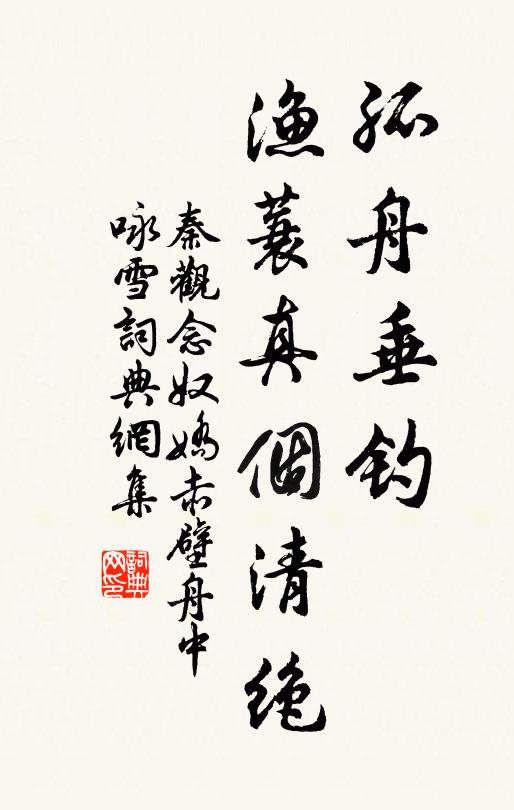 孤舟垂釣
漁蓑真個清絕
秦觀念奴嬌赤壁舟中
咏雪詞典網集
詞典網印